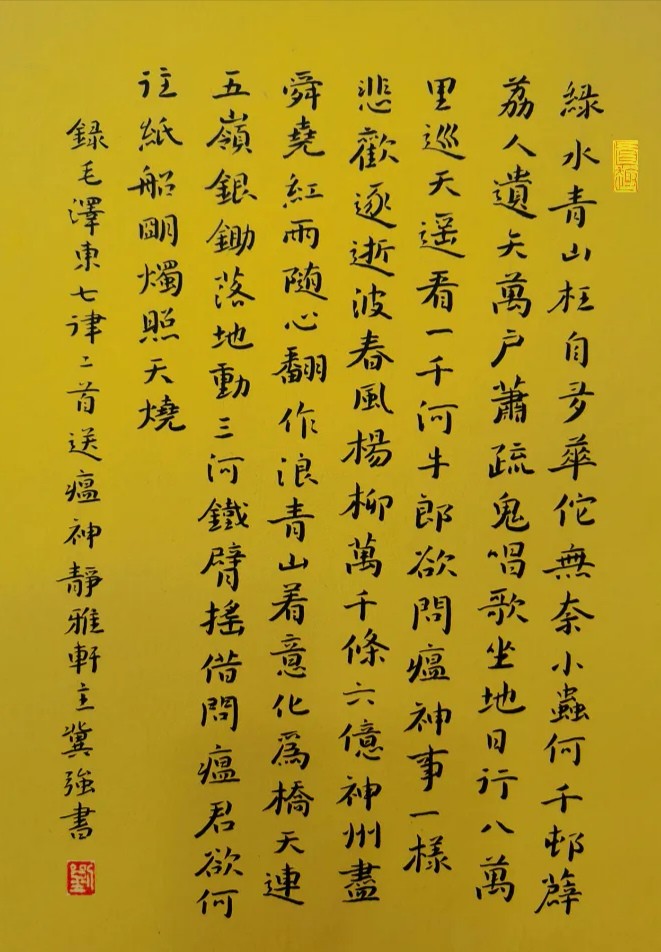 綠水青山枉自多華佗無奈小蟲何千邨薜
荔人遺矢萬户蕭疏鬼唱歌坐地日行八萬
里巡天遥看一千河牛郎欲問瘟神事一樣
悲歡逐逝波春風楊柳萬千條六億神州盡
舜堯紅雨随心翻作浪青山着意化爲橋天連
五嶺銀鋤落地動三河鐵臂搖借問瘟君欲何
往紙船明燭照天燒
録毛澤東七律二首送瘟神靜雅軒主冀強書